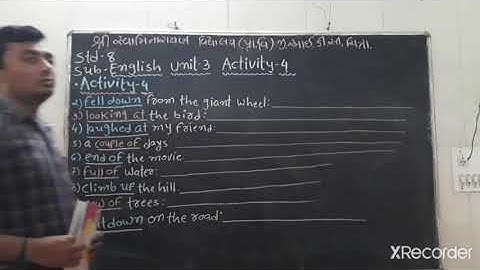 શ્રી સ્વામિનારાયણ વિદ્યાલય (પ્રા.વિ)
Std-8
Sub-English Unit-3 Activity-4
•Activity-4
2) fell down from the giant wheel:
3) looking at the bird:
4) laughed at my friend:
5) a couple of days
6) end of the movie
7) full of water:
climb up the hill.
of trees:
down on the road:
XRecorder